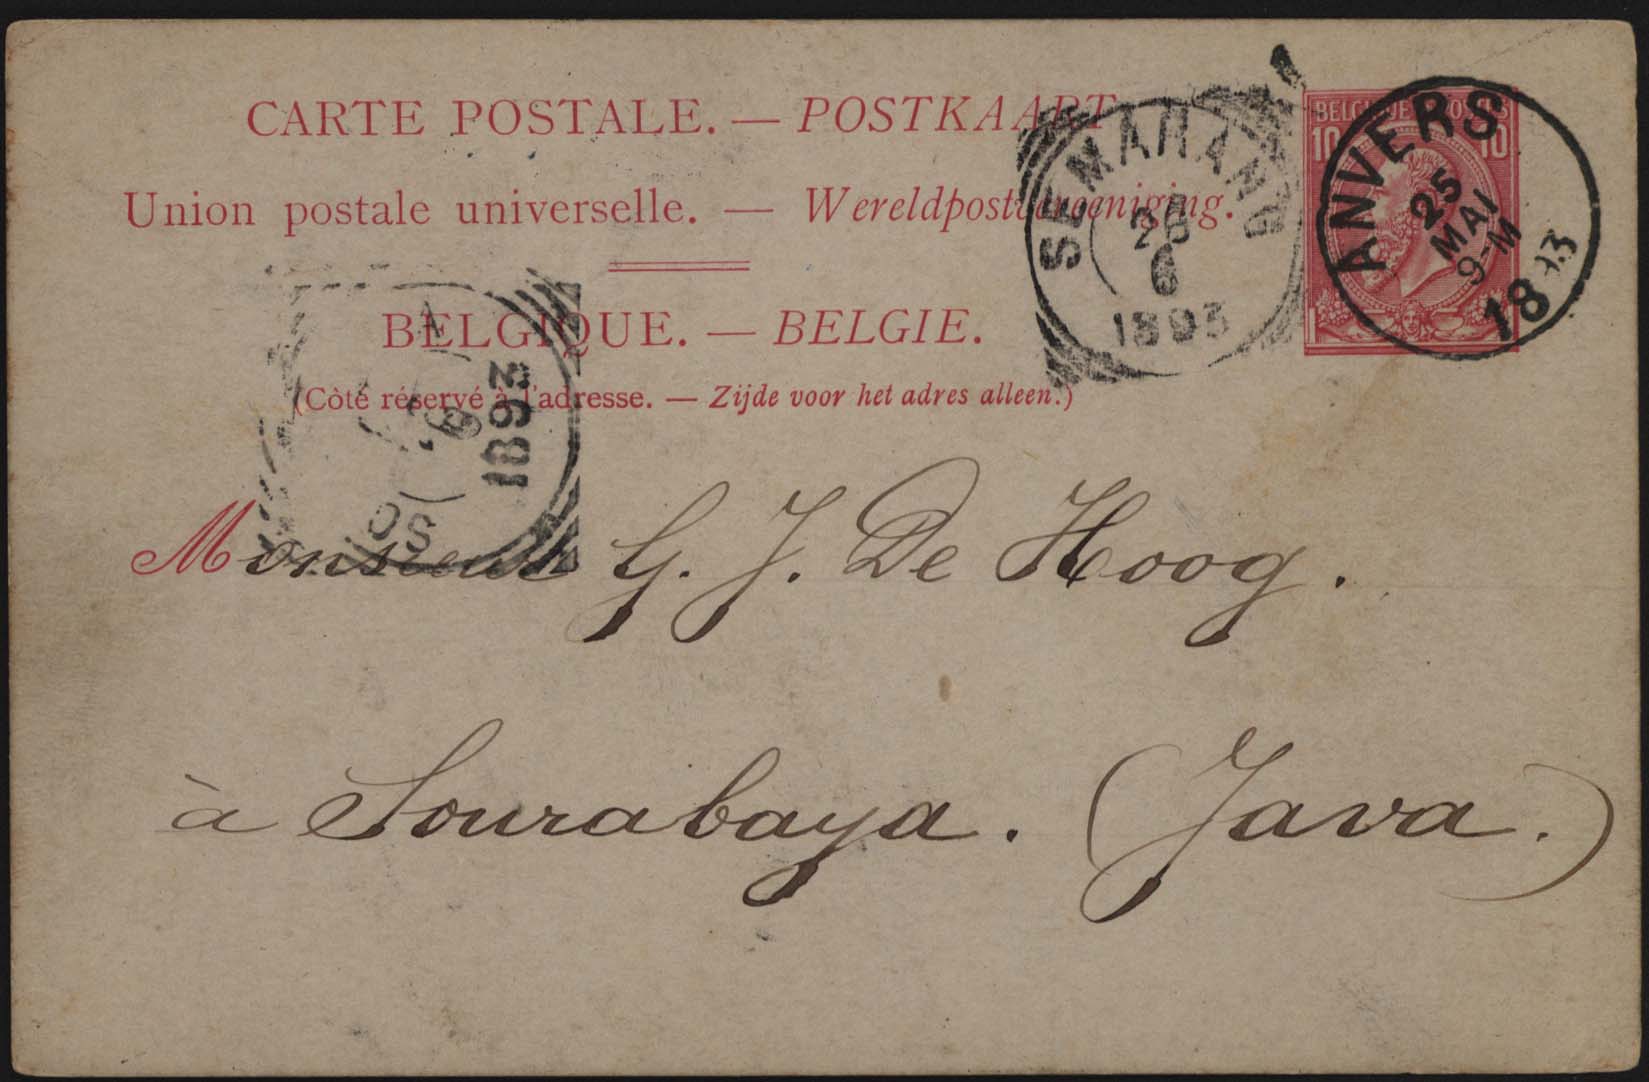 CARTE POSTALE. — POSTKAART
Union postale universelle. — Wereldpostvereeniging.
BELGIQUE. — BELGIE.
(Côté réservé à l'adresse. — Zijde voor het adres alleen.)
BELGIQUE POSTES
10 10
ANVERS
25
MAI
9-M
1893
SEMARANG
28
6
1893
1893
Monsieur G. J. De Hoog.
à Sourabaya. (Java.)